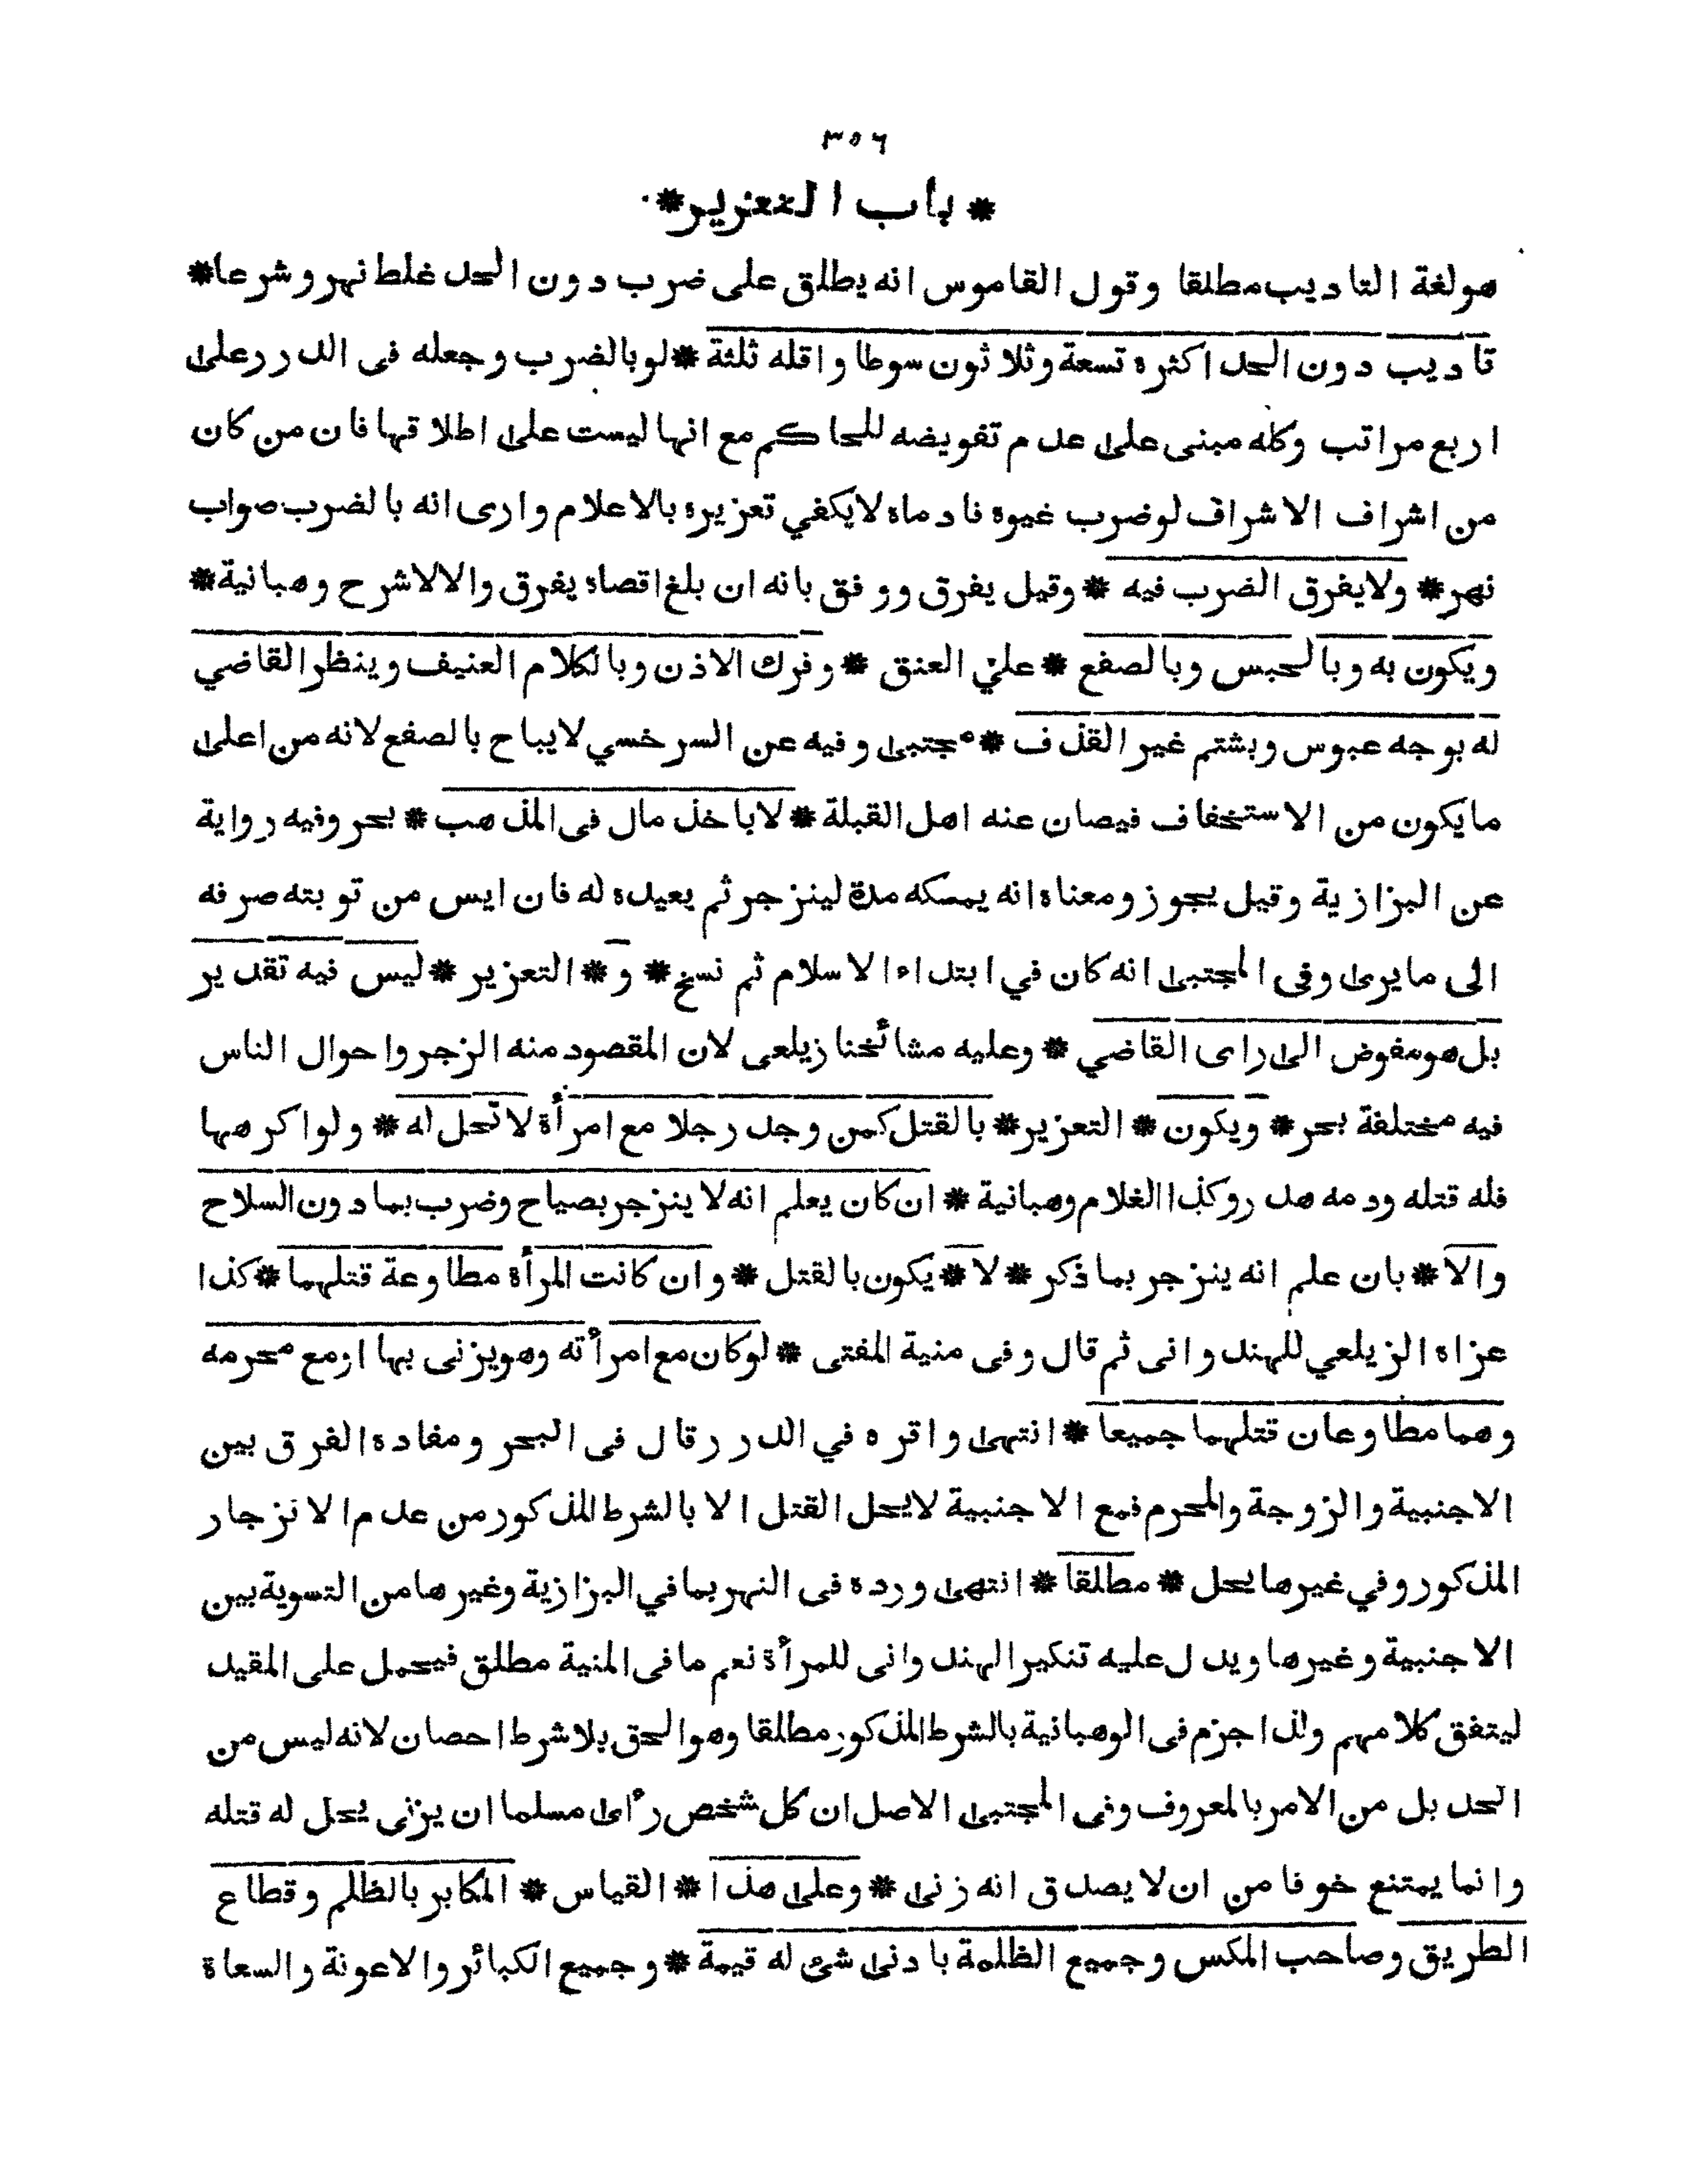 ٣٥٦
* باب التعزير *
هو لغة التاديب مطلقا وقول القاموس انه يطلق على ضرب دون الحد غلط نهر وشرعا *
تاديب دون الحد اكثره تسعة وثلاثون سوطا واقله ثلثة * لو بالضرب وجعله فى الدرر على
اربع مراتب وكله مبنى على عدم تفويضه للحاكم مع انها ليست على اطلاقها فان من كان
من اشراف الاشراف لو ضرب غيره فادماه لا يكفي تعزيره بالاعلام وارى انه بالضرب صواب
نهر * ولا يفرق الضرب فيه * وقيل يفرق ووفق بانه ان بلغ اقصاه يفرق والا لا شرح وهبانية *
ويكون به وبالحبس وبالصفع * علي العنق * وفرك الاذن وبالكلام العنيف وينظر القاضي
له بوجه عبوس وبشتم غير القذف * مجتبى وفيه عن السرخسي لا يباح بالصفع لانه من اعلى
ما يكون من الاستخفاف فيصان عنه اهل القبلة * لا باخذ مال فى المذهب * بحر وفيه رواية
عن البزازية وقيل يجوز ومعناه انه يمسكه مدة لينزجر ثم يعيده له فان ايس من توبته صرفه
الى ما يرى وفى المجتبى انه كان في ابتداء الاسلام ثم نسخ * و * التعزير * ليس فيه تقدير
بل هو مفوض الى راى القاضي * وعليه مشائخنا زيلعى لان المقصود منه الزجر واحوال الناس
فيه مختلفة بحر * ويكون * التعزير * بالقتل كمن وجد رجلا مع امرأة لا تحل له * ولو اكرهها
فله قتله ودمه هدر وكذا الغلام وهبانية * ان كان يعلم انه لا ينزجر بصياح وضرب بما دون السلاح
والا * بان علم انه ينزجر بما ذكر * لا * يكون بالقتل * وان كانت المرأة مطاوعة قتلهما * كذا
عزاه الزيلعي للهندوانى ثم قال وفى منية المفتى * لو كان مع امرأته وهو يزنى بها او مع محرمه
وهما مطاوعان قتلهما جميعا * انتهى واقره في الدرر وقال فى البحر ومفاده الفرق بين
الاجنبية والزوجة والمحرم فمع الاجنبية لا يحل القتل الا بالشرط المذكور من عدم الانزجار
المذكور وفي غيرها يحل * مطلقا * انتهى ورده فى النهر بما في البزازية وغيرها من التسوية بين
الاجنبية وغيرها ويدل عليه تنكير الهندوانى للمرأة نعم ما فى المنية مطلق فيحمل على المقيد
ليتفق كلامهم ولذا جزم فى الوهبانية بالشرط المذكور مطلقا وهو الحق بلا شرط احصان لانه ليس من
الحد بل من الامر بالمعروف وفى المجتبى الاصل ان كل شخص رأى مسلما ان يزنى يحل له قتله
وانما يمتنع خوفا من ان لا يصدق انه زنى * وعلى هذا * القياس * المكابر بالظلم وقطاع
الطريق وصاحب المكس وجميع الظلمة بادنى شئ له قيمة * وجميع الكبائر والاعونة والسعاة